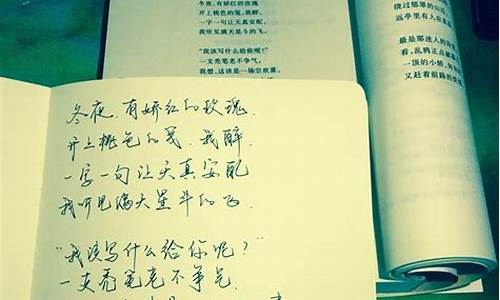 冬夜,有娇红的玫瑰
开上桃色的笺,我醉,
一字一句让天真安配,
我听见满天星斗的飞。
“我该写什么给你呢?”
一支秃笔老不争气。
我想,这该是一场空欢喜。
绕过郁翠的山
远亭里有人在
最是那迷人的
看,乱鸦正点破
一顶的小轿,
又赶着前路的
冬夜,有娇红的玫瑰,
开上桃色的笺,我醉,
一字一句让天真安配
我听见满天星斗的飞。
“我该写什么给你呢?”
一支秃笔老不争气,